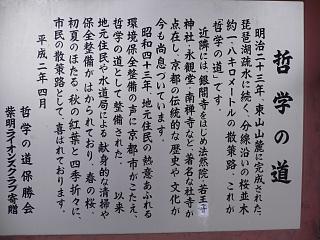 哲学の道
明治二十三年、東山山麓に完成された、
琵琶湖疏水に続く、分線沿いの桜並木
約一・八キロメートルの散策路、これが
「哲学の道」です。
近隣には、銀閣寺をはじめ法然院、若王寺
神社、永観堂、南禅寺など、著名な社寺が
点在し、京都の伝統的な歴史や文化が
今も尚息づいています。
昭和四十三年、地元住民の熱意あふれる
環境保全整備の声に京都市がこたえ、
哲学の道として整備された。以来
地元住民や水道局による献身的な清掃や
保全整備がはかられており、春の桜、
初夏のほたる、秋の紅葉と四季折々に、
市民の散策路として、喜ばれております。
平成二年四月
哲学の道保勝会
紫明ライオンズクラブ寄贈